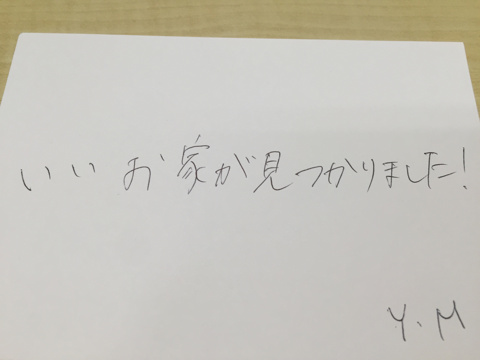 いいお家が見つかりました!
Y.M